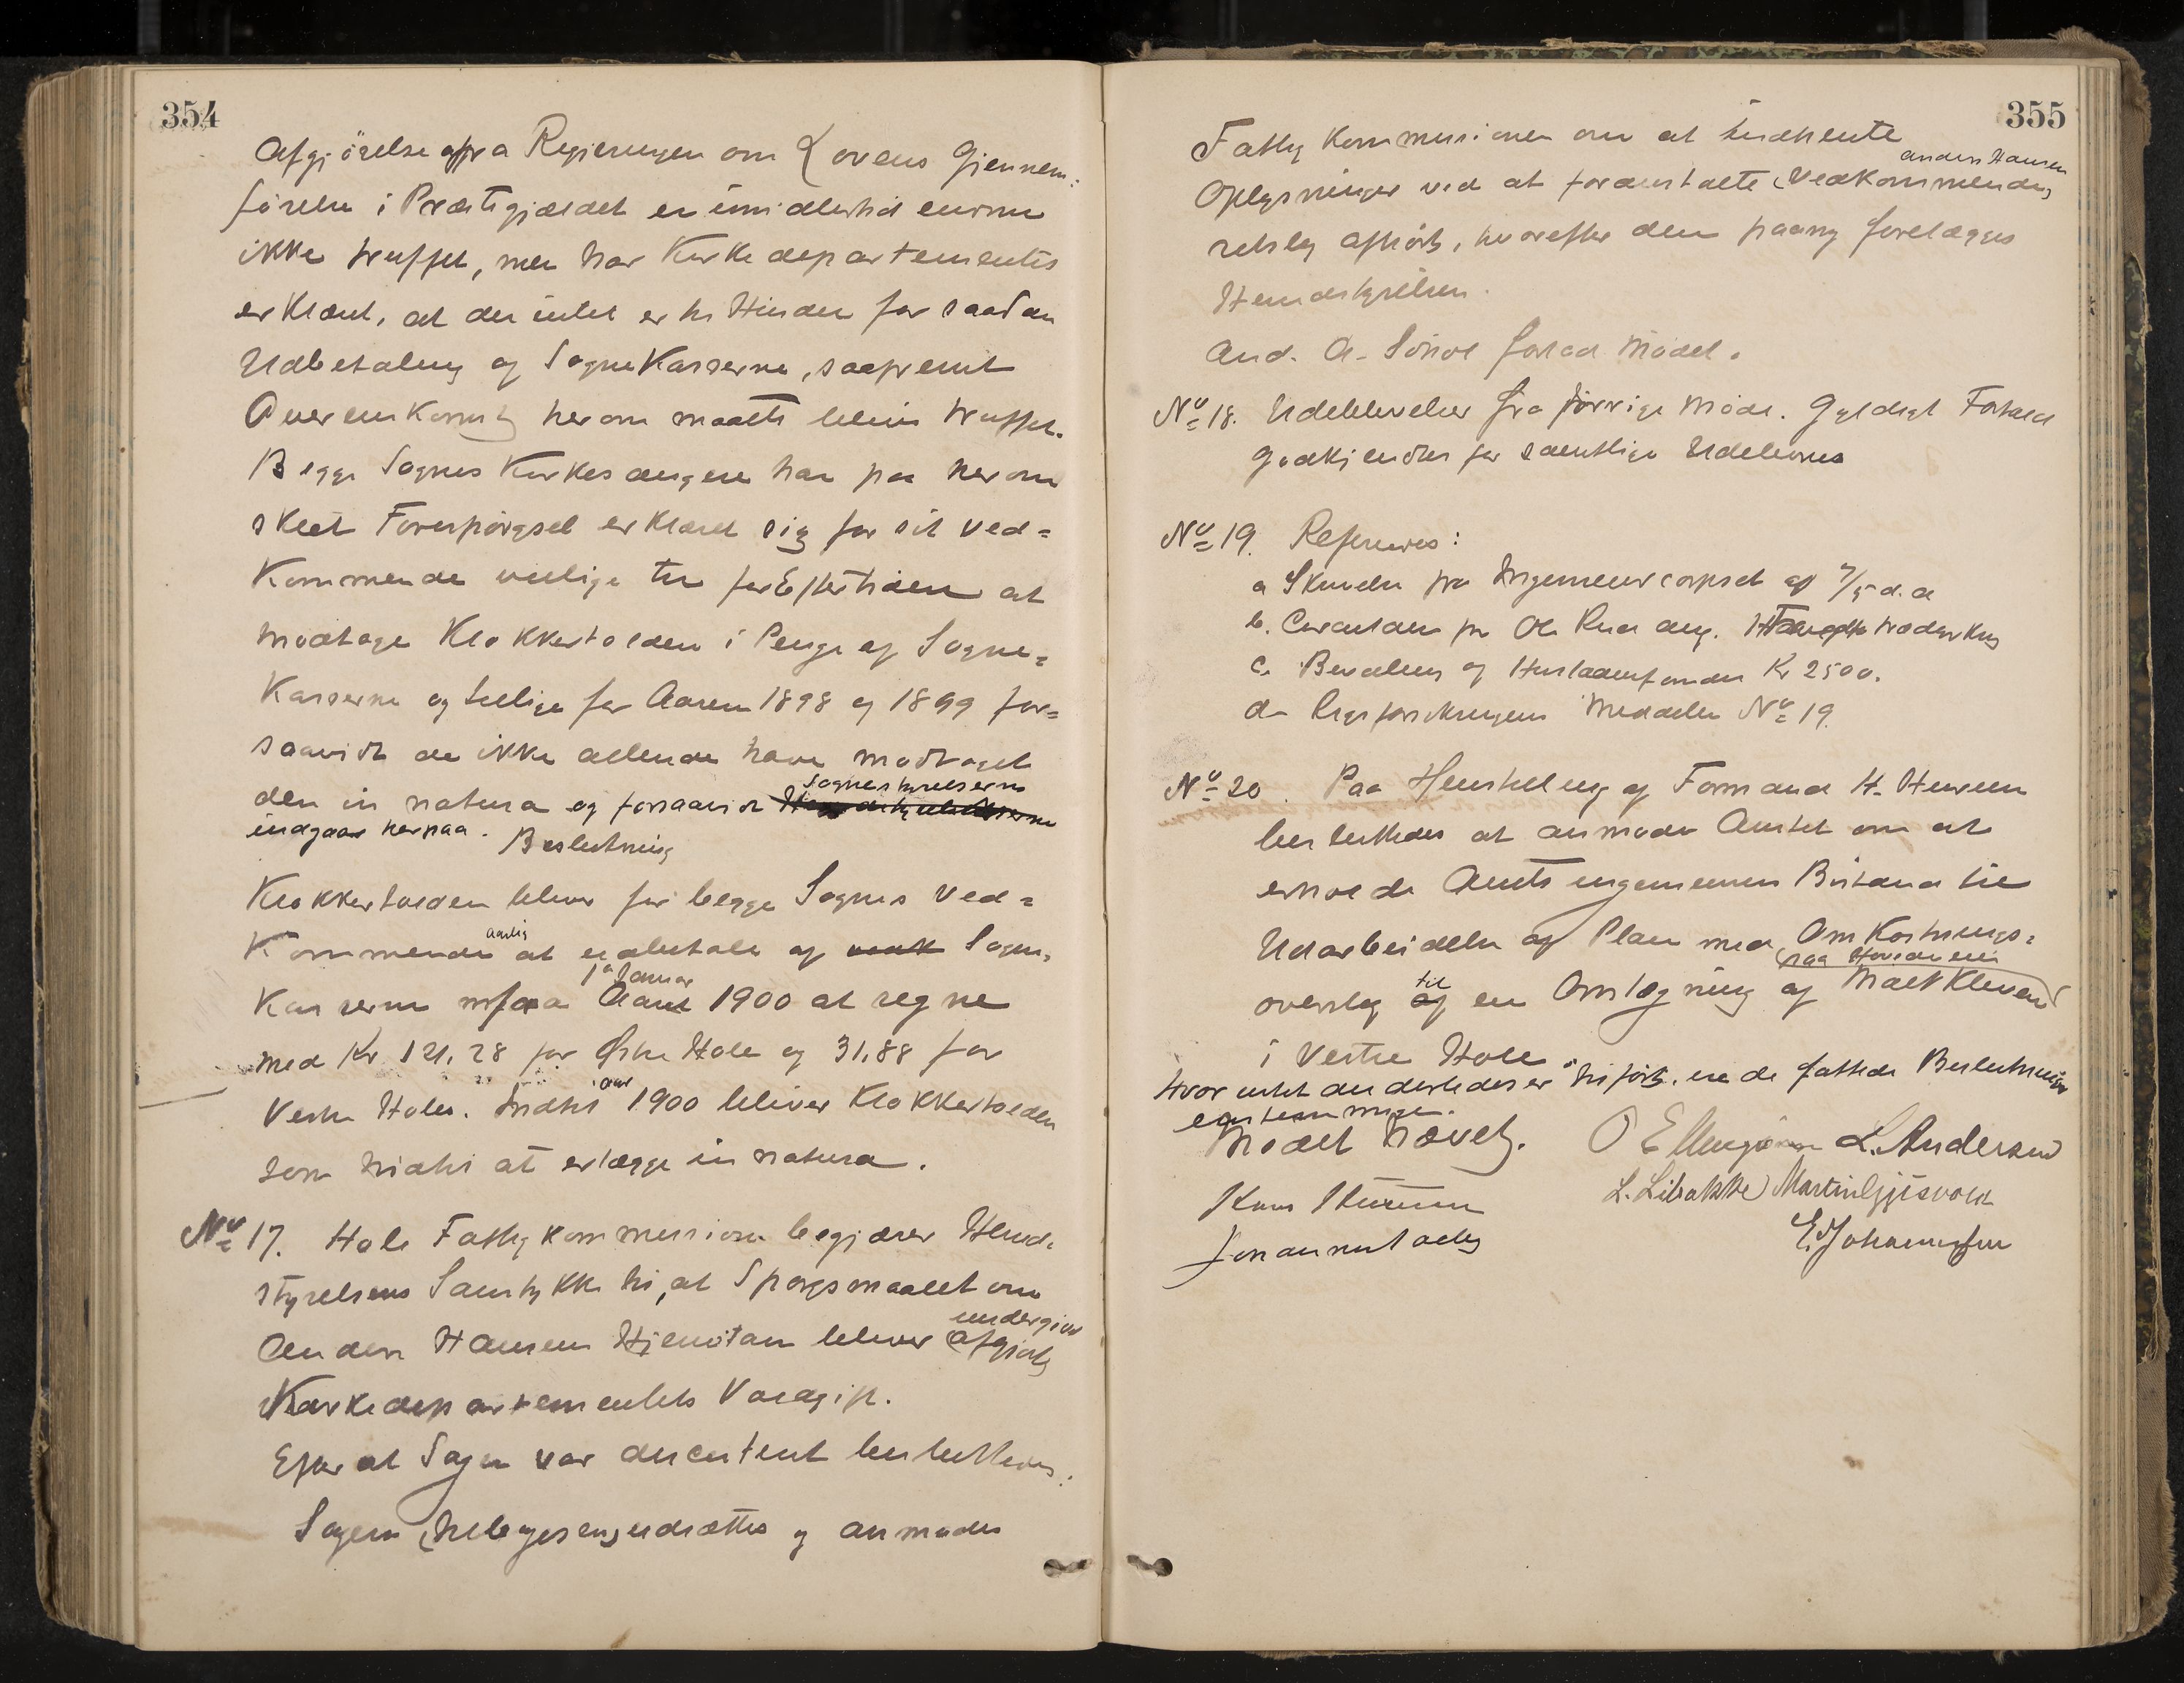 354
Afgjörelse fra Regjeringen om Lovens Gjennem:
förelse i Præstegjældet er imidlertid endnu
ikke truffet, men har Kirkedepartementet
erklæret, at der intet er til Hinder for saadan
Udbetaling af Sognekasserne, saafremt
Overenskomst herom maatte blive truffet.
Begge Sognes Kirkesangere har paa herom
skeet Forespörgsel erklæret sig for sit Ved=
kommende villige til for Eftertiden at
modtage Klokkertolden i Penge af Sogne=
kasserne og tillige for Aarene 1898 og 1899 for=
saavidt de ikke allerede have modtaget
den in natura og forsaavidt Sognestyrelserne
indgaar herpaa. Beslutning
Klokkertolden bliver for begge Sognes Ved=
kommende aarlig at udbetale af Sogne=
kasserne fra 1ste Januar 1900 at regne
med Kr. 121,28 for Østre Hole og 31,88 for
Vestre Hole. Indtil aar 1900 bliver Klokkertolden
som hidtil at erlægge in natura.
No 17. Hole Fattigkommission begjærer Herred=
styrelsens Samtykke til, at Spörgsmaalet om
Anders Hansen bliver undergivet
Kirkedepartementets Afgjörelse
Efter at Sagen var discuteret besluttedes:
Sagen udsættes og anmodes
355
Fattigkommissionen om at indhente
Oplysninger ved at foranstalte Vedkommende Anders Hansen
retslig afhört, hvorefter den paany forelægges
Herredstyrelsen.
And. A. Sönsl forlod Mödet.
No 18. Udeblivelser fra forrige Möde. Gyldigt Forfald
godkjendtes for samtlige Udeblevne
No 19. Refereres:
a Skrivelse fra Ingenieurcorpset af 7/5 d.a
b. Circulære fra Ole Rud ang.
c. Bevilling af Husladerfondet Kr 2500.
d. Rigsforsikringens Meddelelse No 19.
No 20. Paa Henstilling af Formand H. Stuveren
besluttedes at anmode Amtet om at
erholde Amtsingeniörens Bistand til
Udarbeidelse af Plan med Omkostnings=
overslag til en Omlægning af Mælkleven paa Hovedveien
i Vestre Hole
Hvor intet anderledes er tilfört, ere de fattede Beslutninger
eenstemmige.
Mödet hævet. O Ellingsen L. Andersen
L. Libakke Martin Gjesvold
E. Johannesen